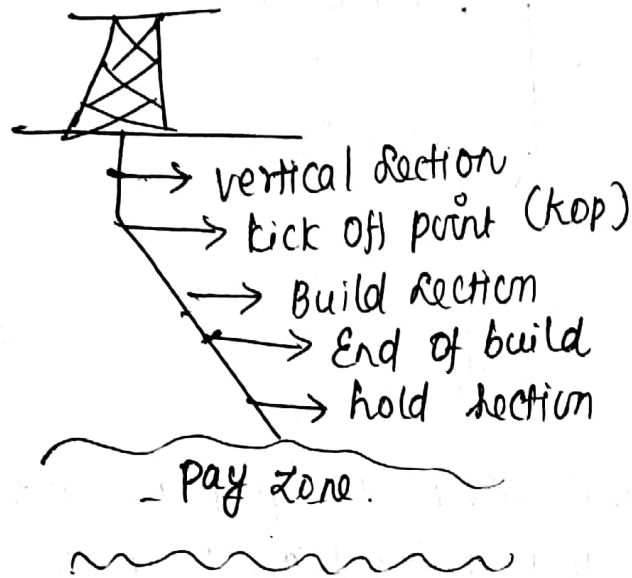 vertical section
kick off point (KOP)
Build section
End of build
hold section
Pay zone.